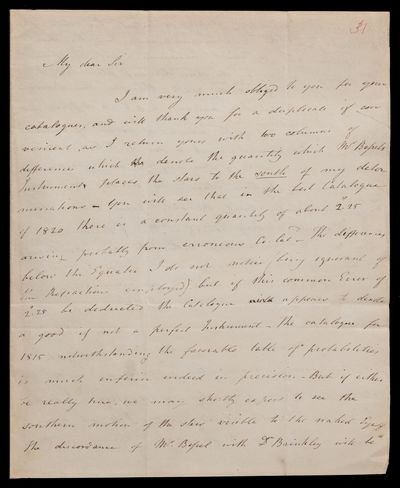 31
My dear Sir
I am very much obliged to you for your
catalogues, and will thank you for a duplicate if con
venient, as I return yours with two columns of
differences which denote the quantity which Mr Bessels
Instrument places the stars to the south of my deter
minations – You will see that in the last Catalogue
of 1820 there is a constant quantity of about 2".25
arising probably from erroneous Co Latde – The differences
below the Equator I do not notice being ignorant of
the Refraction employed) but if this common Error of
2".25 be deducted the Catalogue appears to denote
a good if not a perfect Instrument – The catalogue for
1815 notwithstanding the favorable table of probabilities
is much inferior indeed in precision – But if either
be really true, we may shortly expect to see the
southern motion of the stars visible to the naked Eye
The discordance of Mr. Bessel with Dr Brinkley will be